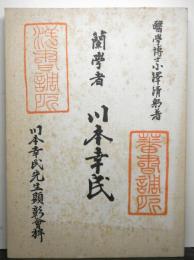 醫學博士小澤清躬著
蘭學者
川本幸民
川本幸民先生顯彰會梓
蕃書調所